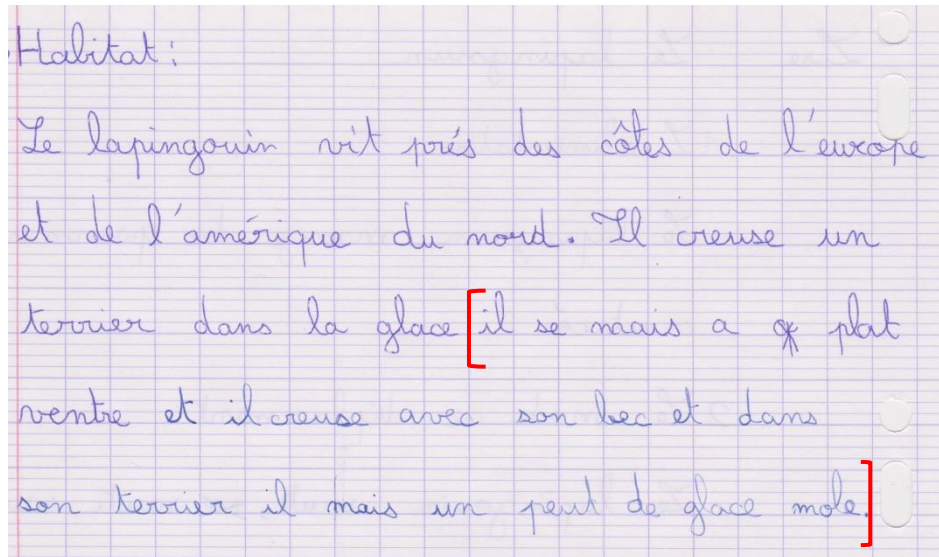 Habitat:
Le lapingouin vit prés des côtes de l'europe
et de l'amérique du nord. Il creuse un
terrier dans la glace [il se mais a plat
ventre et il creuse avec son bec et dans
son terrier il mais un peut de glace mole.]